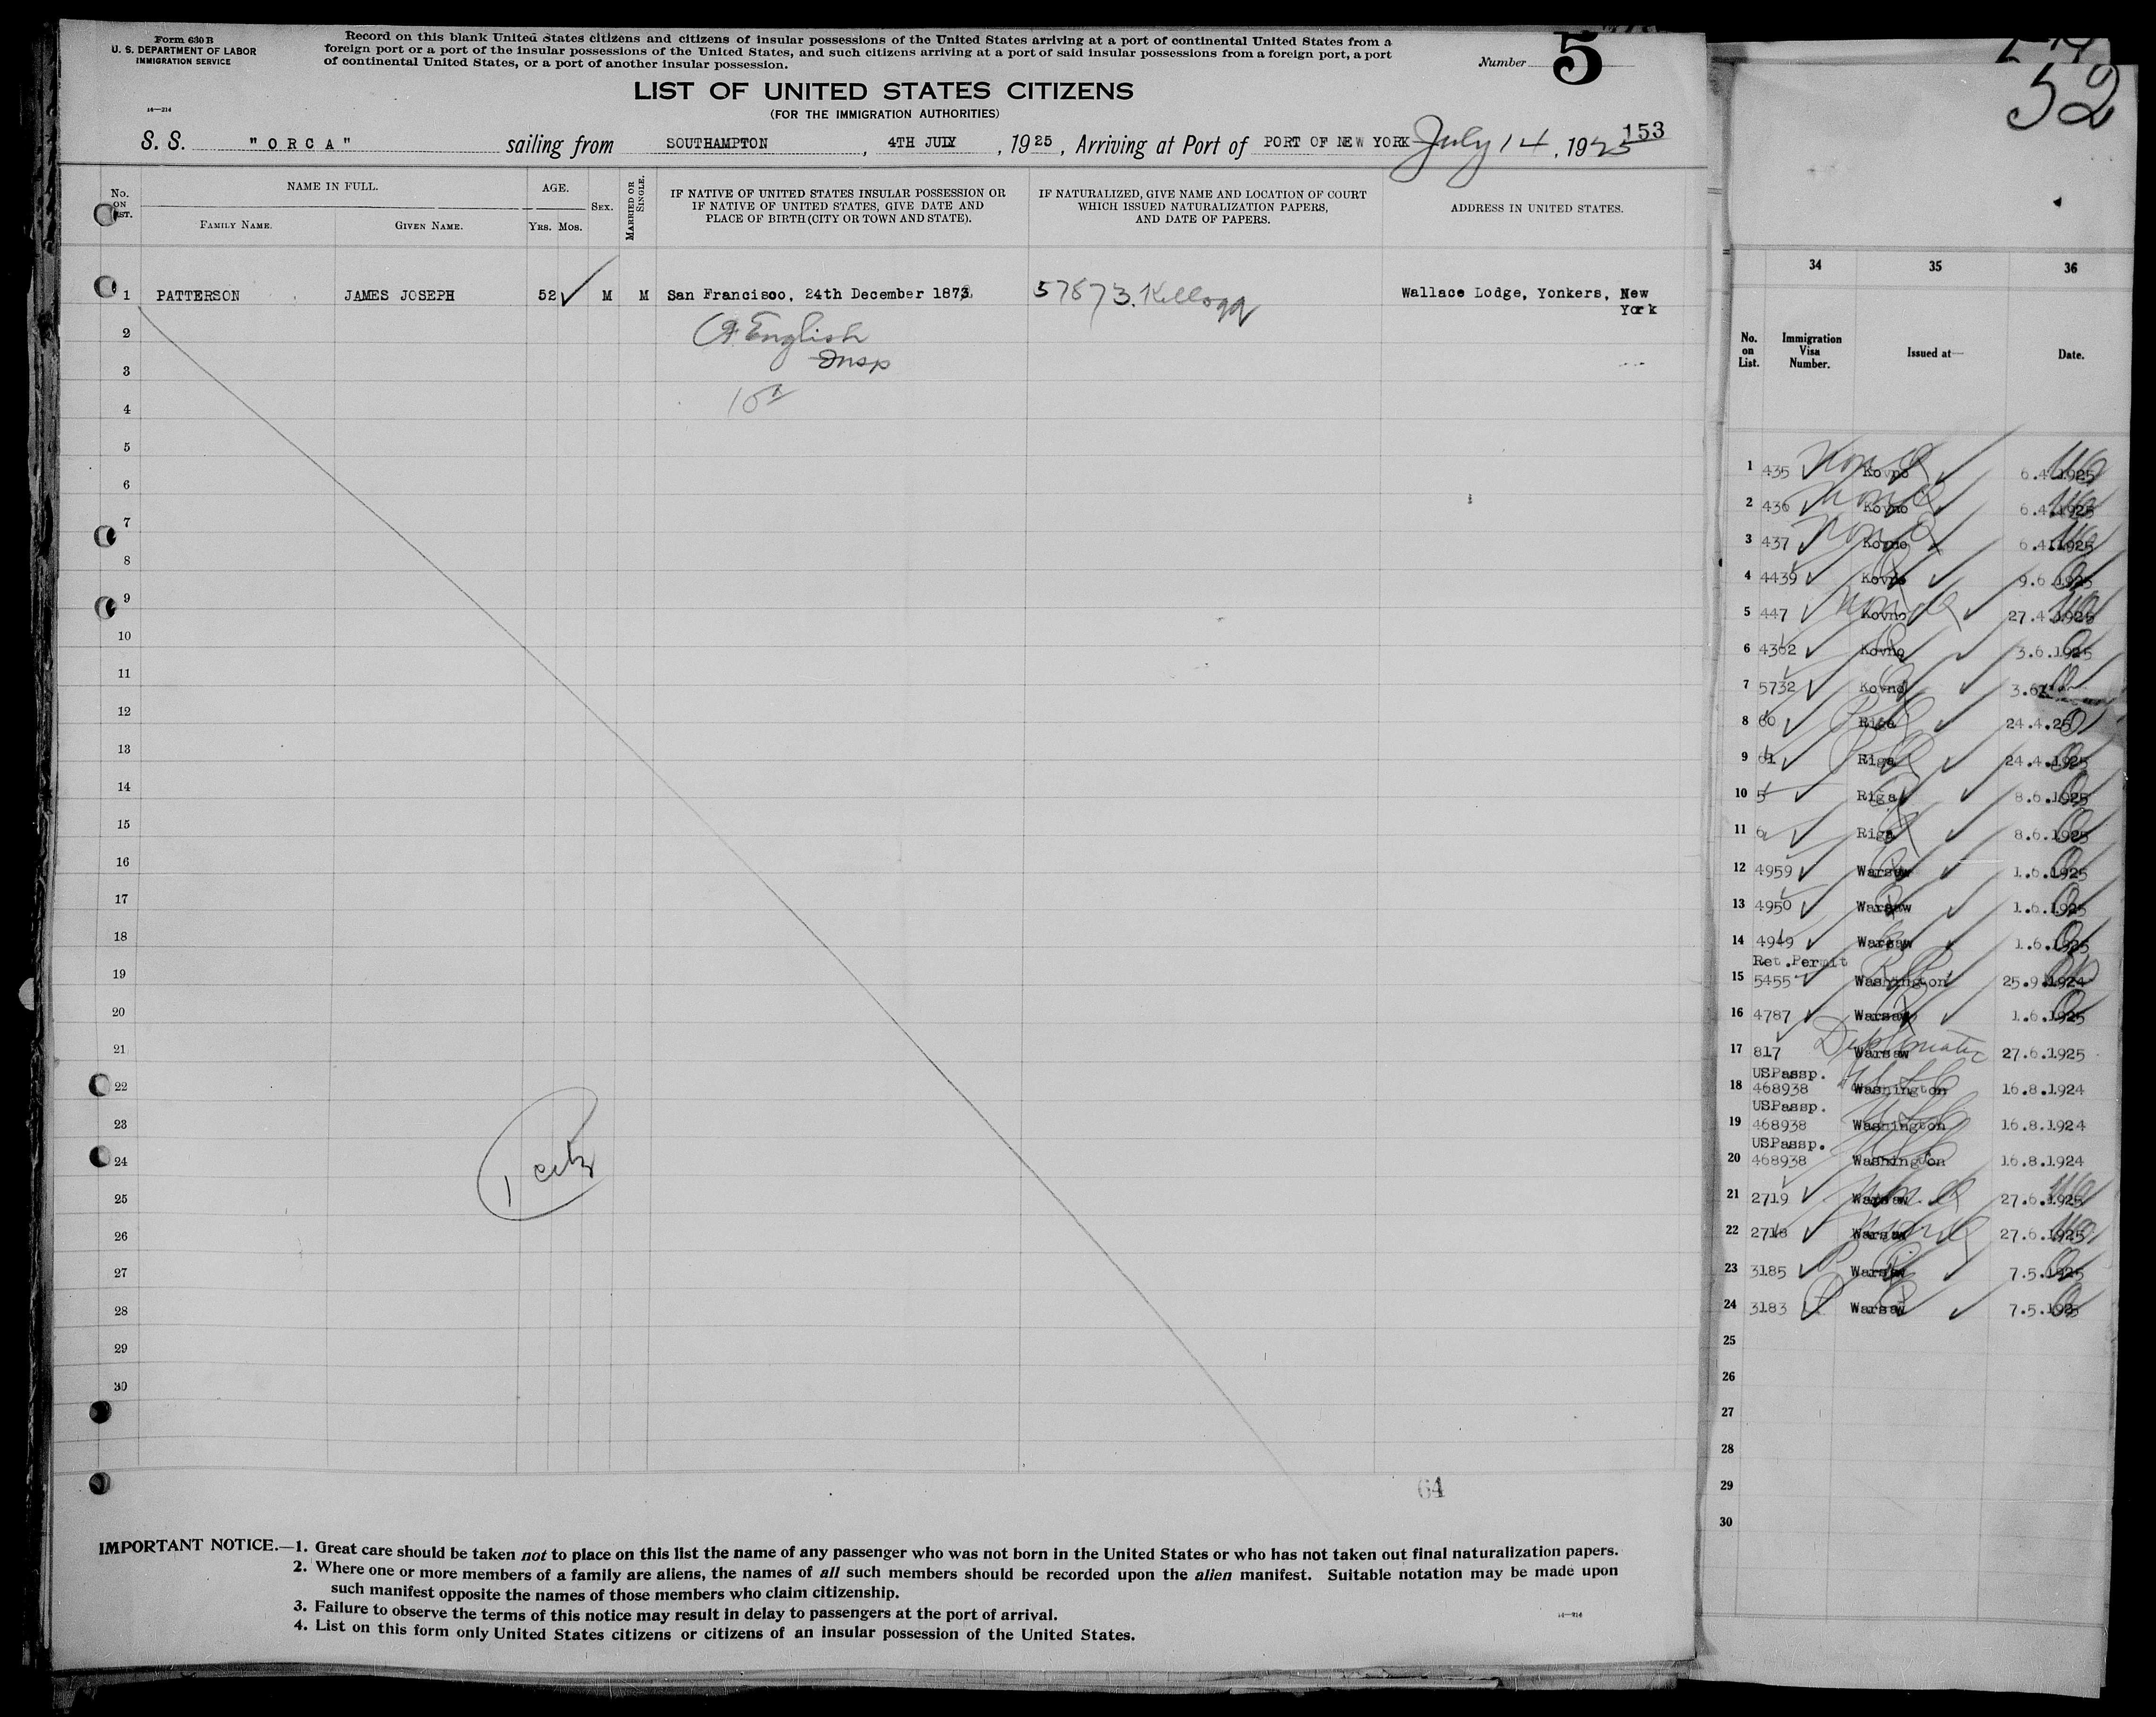 Form 630 B
U. S. DEPARTMENT OF LABOR
IMMIGRATION SERVICE
14—214
Record on this blank United States citizens and citizens of insular possessions of the United States arriving at a port of continental United States from a
foreign port or a port of the insular possessions of the United States, and such citizens arriving at a port of said insular possessions from a foreign port, a port
of continental United States, or a port of another insular possession.
Number 5
LIST OF UNITED STATES CITIZENS
(FOR THE IMMIGRATION AUTHORITIES)
153
S. S. "ORCA" sailing from SOUTHAMPTON, 4TH JULY, 1925, Arriving at Port of PORT OF NEW YORK July 14, 1925
No. ON LIST.
NAME IN FULL.
FAMILY NAME.
GIVEN NAME.
AGE.
YRS. MOS.
SEX.
MARRIED OR SINGLE.
IF NATIVE OF UNITED STATES INSULAR POSSESSION OR
IF NATIVE OF UNITED STATES, GIVE DATE AND
PLACE OF BIRTH (CITY OR TOWN AND STATE).
IF NATURALIZED, GIVE NAME AND LOCATION OF COURT
WHICH ISSUED NATURALIZATION PAPERS,
AND DATE OF PAPERS.
ADDRESS IN UNITED STATES.
1 PATTERSON JAMES JOSEPH 52 M M San Francisco, 24th December 1873 57873. Kellogg Wallace Lodge, Yonkers, New
York
2 English
Insp
3
4
5
6
7
8
9
10
11
12
13
14
15
16
17
18
19
20
21
22
23
24
25
26
27
28
29
30
1 citz
64
IMPORTANT NOTICE.—1. Great care should be taken not to place on this list the name of any passenger who was not born in the United States or who has not taken out final naturalization papers.
2. Where one or more members of a family are aliens, the names of all such members should be recorded upon the alien manifest. Suitable notation may be made upon
such manifest opposite the names of those members who claim citizenship.
3. Failure to observe the terms of this notice may result in delay to passengers at the port of arrival.
4. List on this form only United States citizens or citizens of an insular possession of the United States.
14—214
52
34 35 36
No. on List.
Immigration Visa Number.
Issued at—
Date.
1 435 Kovno 6.4.1925
2 436 Kovno 6.4.1925
3 437 Kovno 6.4.1925
4 4439 Kovno 9.6.1925
5 447 Kovno 27.4.1925
6 4362 Kovno 3.6.1925
7 5732 Kovno 3.6.
8 60 Riga 24.4.25
9 61 Riga 24.4.1925
10 5 Riga 8.6.1925
11 6 Riga 8.6.1925
12 4959 Warsaw 1.6.1925
13 4950 Warsaw 1.6.1925
14 4949 Warsaw 1.6.1925
Ret.Permit
15 5455 Washington 25.9.1924
16 4787 Warsaw 1.6.1925
Diplomatic
17 817 Warsaw 27.6.1925
USPassp.
18 468938 Washington 16.8.1924
USPassp.
19 468938 Washington 16.8.1924
USPassp.
20 468938 Washington 16.8.1924
21 2719 Warsaw 27.6.1925
22 2718 Warsaw 27.6.1925
23 3185 Warsaw 7.5.1925
24 3183 Warsaw 7.5.1925
25
26
27
28
29
30